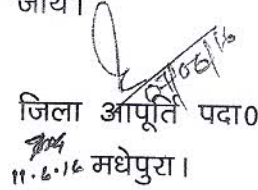 जाये।
जिला आपूर्ति पदा0
11.6.16 मधेपुरा।